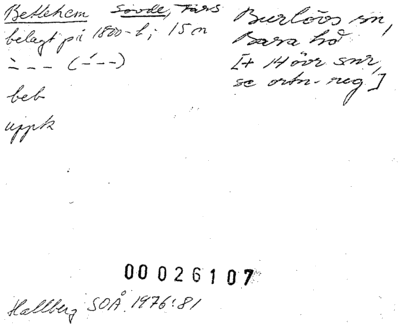 Betlehem Sövde, Färs Burlövs sn,
belagt på 1800-t; 15 n Bara hd
-́ - - (-̀ - -) [+ 14 övr snr,
se ortn-reg]
beb
uppk
00026107
Hallberg SOÅ 1976:81